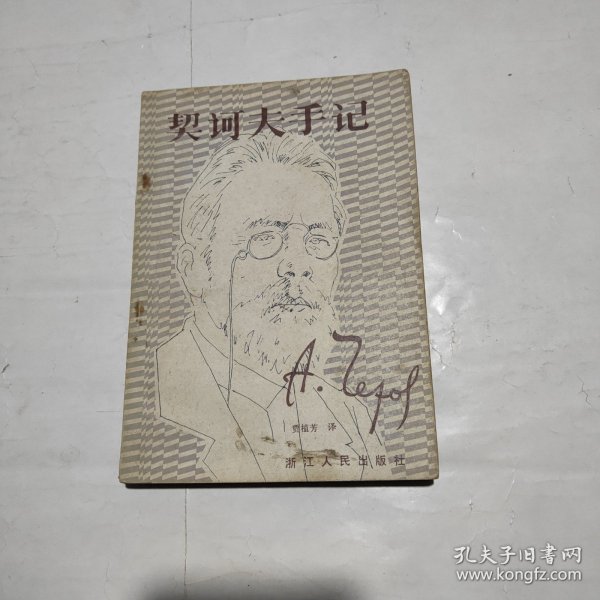 契诃夫手记
А. Чехов
贾植芳 译
浙江人民出版社
孔夫子旧书网
www.kongfz.com